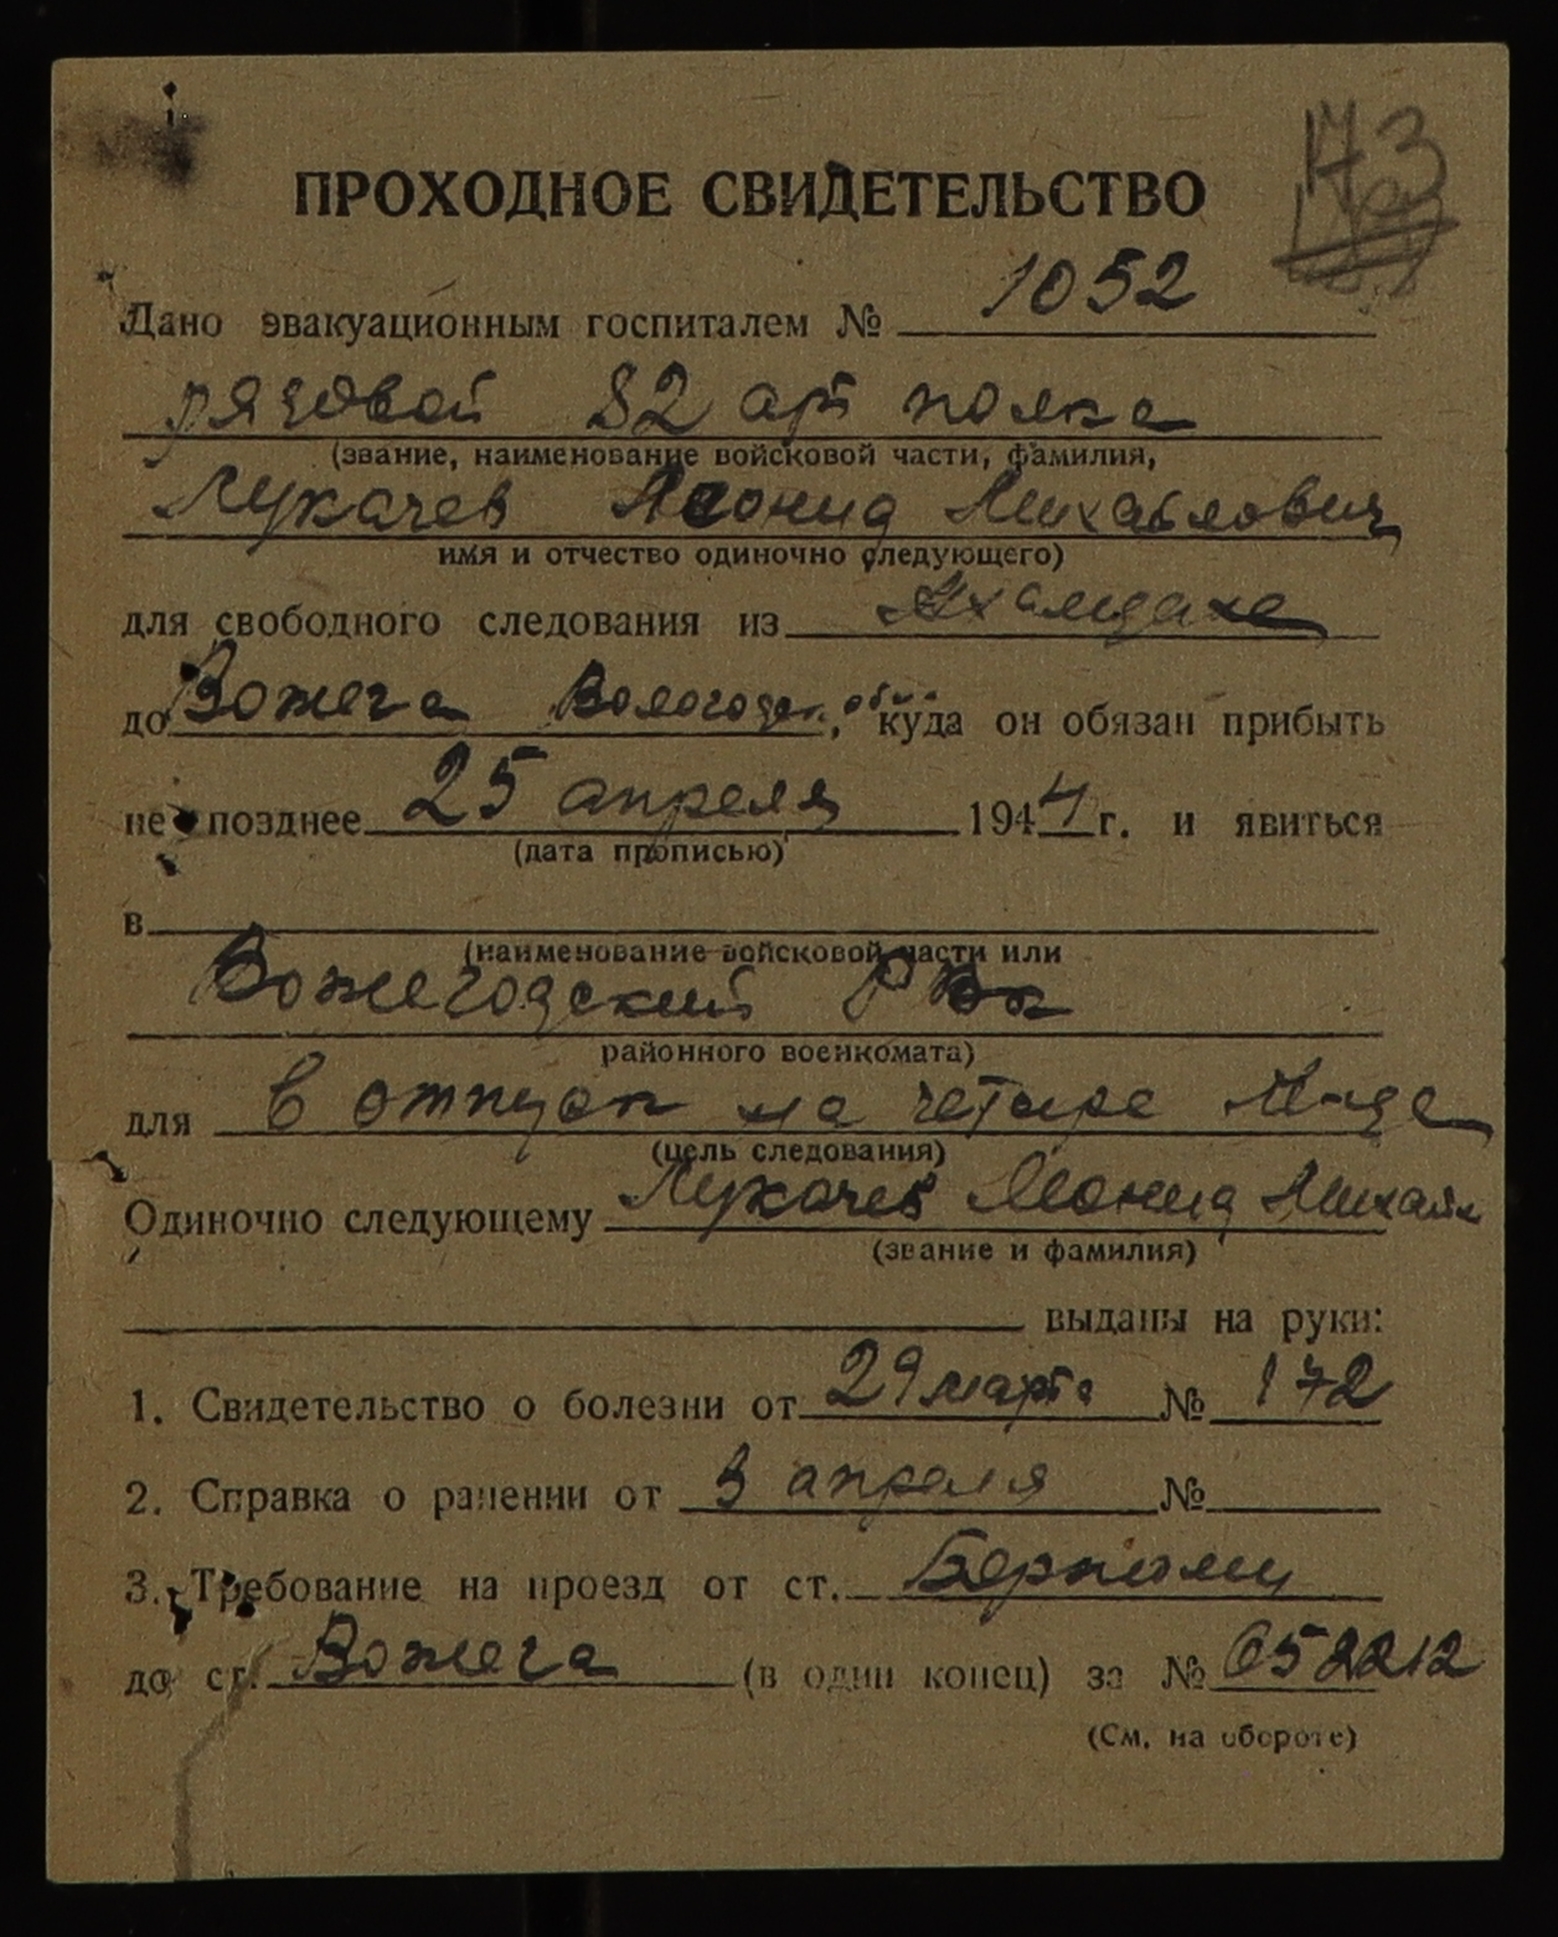 173
ПРОХОДНОЕ СВИДЕТЕЛЬСТВО
Дано эвакуационным госпиталем № 1052
рядовой 82 арт полка
(звание, наименование войсковой части, фамилия,
Лукачев Леонид Михайлович
имя и отчество одиночно следующего)
для свободного следования из
до Вожега Вологодск. обл., куда он обязан прибыть
не позднее 25 апреля 1944 г. и явиться
(дата прописью)
в
(наименование войсковой части или
Вожегодский РВк
районного военкомата)
для в отпуск на четыре м-ца
(цель следования)
Одиночно следующему Лукачев Леонид Михайл
(звание и фамилия)
выданы на руки:
1. Свидетельство о болезни от 29 марта № 172
2. Справка о ранении от 3 апреля №
3. Требование на проезд от ст.
до ст. Вожега (в один конец) за № 652212
(См. на обороте)